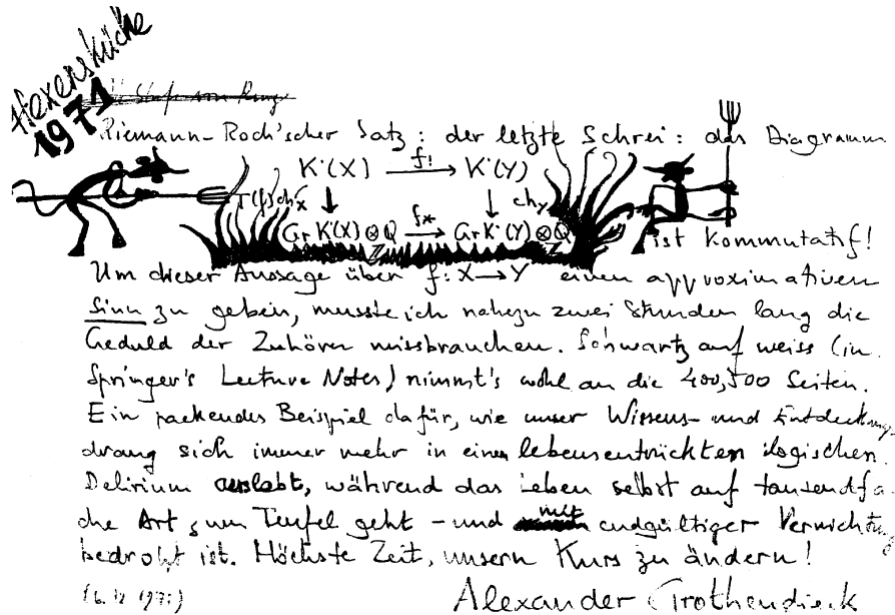 Hexenküche
1971
Riemann-Roch'scher Satz: der letzte Schrei: das Diagramm
K·(X) f! → K·(Y)
T(f)ch_X ↓ ↓ ch_Y
Gr K·(X) ⊗_Z Q f* → Gr K·(Y) ⊗_Z Q
ist kommutatif!
Um dieser Aussage über f: X → Y einen approximativen
Sinn zu geben, musste ich nahezu zwei Stunden lang die
Geduld der Zuhörer missbrauchen. Schwartz auf weiss (in
Springer's Lecture Notes) nimmt's wohl an die 400, 500 Seiten.
Ein packendes Beispiel dafür, wie unser Wissens- und Entdeckungs-
drang sich immer mehr in einem lebensentrückten logischen
Delirium auslebt, während das Leben selbst auf tausendfa-
che Art zum Teufel geht - und mit endgültiger Vernichtung
bedroht ist. Höchste Zeit, unsern Kurs zu ändern!
Alexander Grothendieck